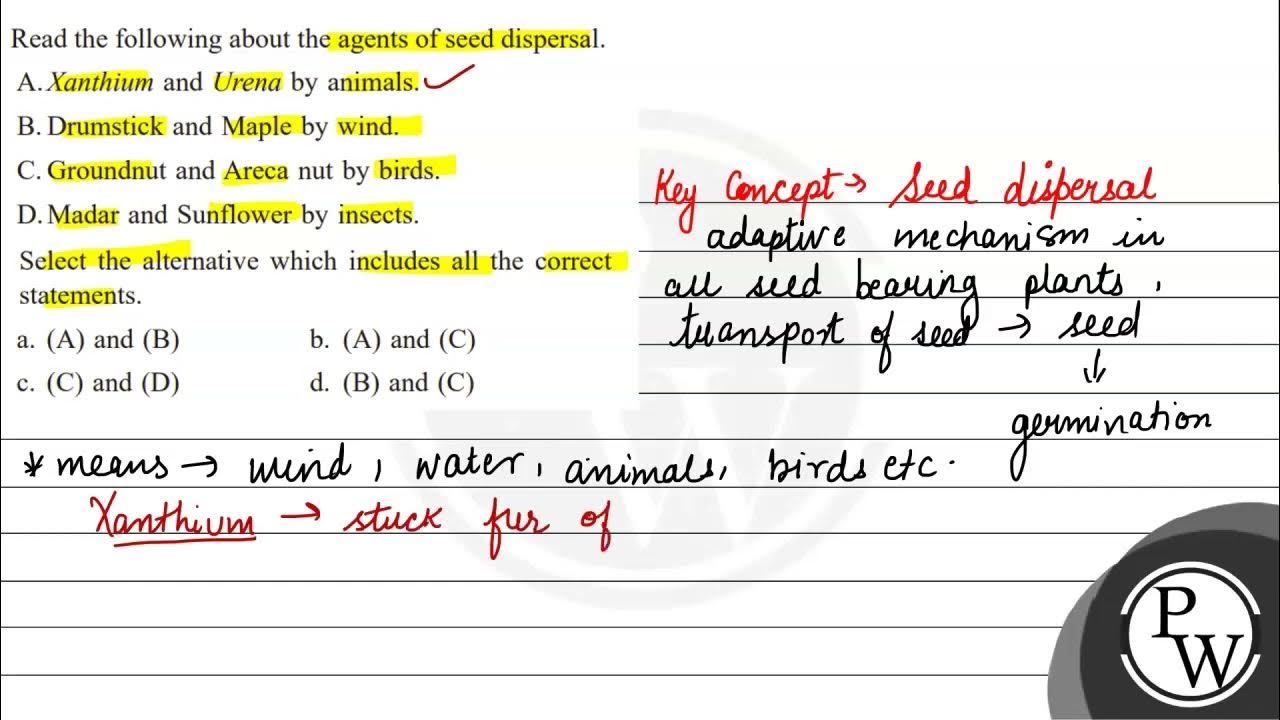 Read the following about the agents of seed dispersal.
A. Xanthium and Urena by animals.
B. Drumstick and Maple by wind.
C. Groundnut and Areca nut by birds.
D. Madar and Sunflower by insects.
Select the alternative which includes all the correct
statements.
a. (A) and (B) b. (A) and (C)
c. (C) and (D) d. (B) and (C)
Key Concept → Seed dispersal
adaptive mechanism in
all seed bearing plants,
transport of seed → seed
↓
germination
* means → wind, water, animals, birds etc.
Xanthium → stuck fur of
PW